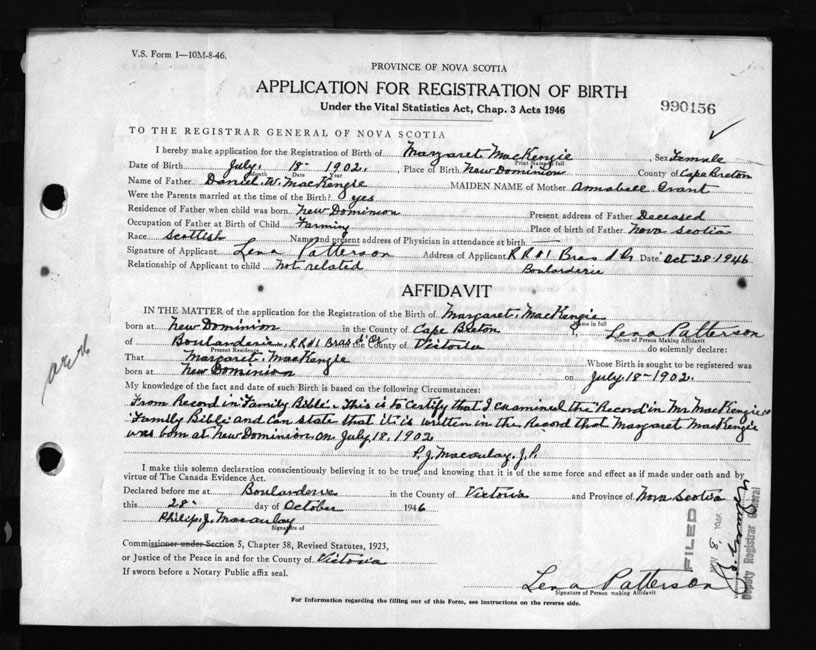 V.S. Form 1—10M-8-46.
PROVINCE OF NOVA SCOTIA
APPLICATION FOR REGISTRATION OF BIRTH
Under the Vital Statistics Act, Chap. 3 Acts 1946
990156
TO THE REGISTRAR GENERAL OF NOVA SCOTIA
I hereby make application for the Registration of Birth of Margaret MacKenzie Sex Female
Print Name in full
Date of Birth July. 18- 1902. Place of Birth New Dominion County of Cape Breton
Month Date Year
Name of Father Daniel W. MacKenzie MAIDEN NAME of Mother Annabell Grant
Were the Parents married at the time of the Birth? yes
Residence of Father when child was born New Dominion Present address of Father Deceased
Occupation of Father at Birth of Child Farming Place of birth of Father Nova Scotia
Race Scottish Name and present address of Physician in attendance at birth
Signature of Applicant Lena Patterson Address of Applicant R R #1 Bras d Or Date Oct 28-1946
Relationship of Applicant to child Not related Boularderie
AFFIDAVIT
IN THE MATTER of the application for the Registration of the Birth of Margaret. MacKenzie
Name in full
born at New Dominion in the County of Cape Breton I, Lena Patterson
Name of Person Making Affidavit
of Boularderie, R R #1 Bras d'Or in the County of Victoria do solemnly declare:
Present Residence
That Margaret. MacKenzie Whose Birth is sought to be registered was
born at New Dominion on July. 18- 1902.
My knowledge of the fact and date of such Birth is based on the following Circumstances:
From Record in Family Bible. This is to certify that I examined the Record in Mr MacKenzie's
Family Bible and can state that it is written in the Record that Margaret MacKenzie
was born at New Dominion on July. 18, 1902
P. J. Macaulay. J.P.
I make this solemn declaration conscientiously believing it to be true, and knowing that it is of the same force and effect as if made under oath and by
virtue of The Canada Evidence Act.
Declared before me at Boularderie in the County of Victoria and Province of Nova Scotia
this 28- day of October 1946
Philip J. Macaulay
Signature of
Commissioner under Section 5, Chapter 38, Revised Statutes, 1923,
or Justice of the Peace in and for the County of Victoria
If sworn before a Notary Public affix seal.
Lena Patterson
Signature of Person making Affidavit
FILED
Deputy Registrar General
For Information regarding the filling out of this Form, see instructions on the reverse side.